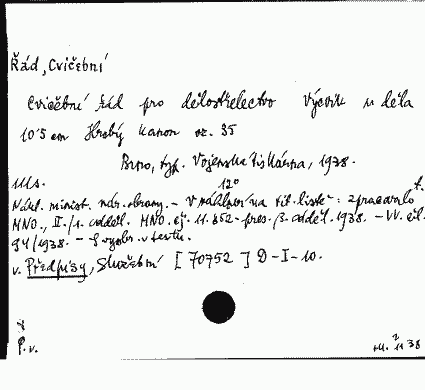 Řád, Cvičební
Cvičební řád pro dělostřelectvo Výcvik u děla
10'5 cm Hrubý kanon vz. 35
Brno, typ. Vojenská tiskárna, 1938.
12°
Nákl. minist. nár. obrany. - V náhl. na tit. listě: zpracovalo
MNO., II./1. odděl. MNO. čj. 11.852-pres./3. odděl. 1938. - VV. čl.
94/1938. - S vyobr. v textu.
v. Předpisy, Služební [70752] D-I-10.
P. v.
38